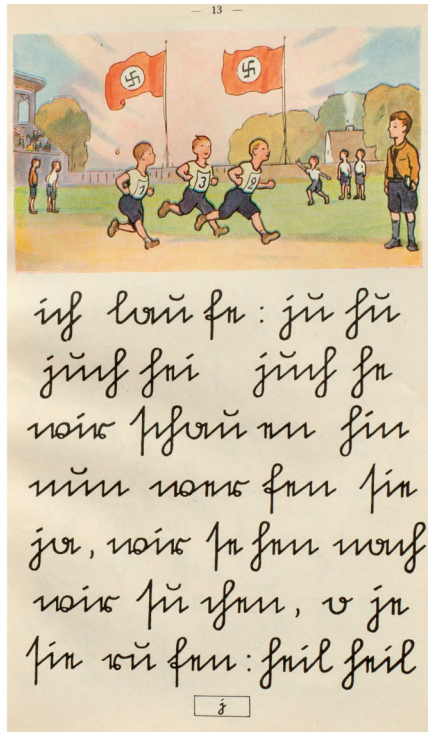 — 13 —
7 3 9
ich lau fe : ju hu
juch hei juch he
wir schau en hin
nun wer fen sie
ja, wir se hen nach
wir su chen, o je
sie ru fen : heil heil
j